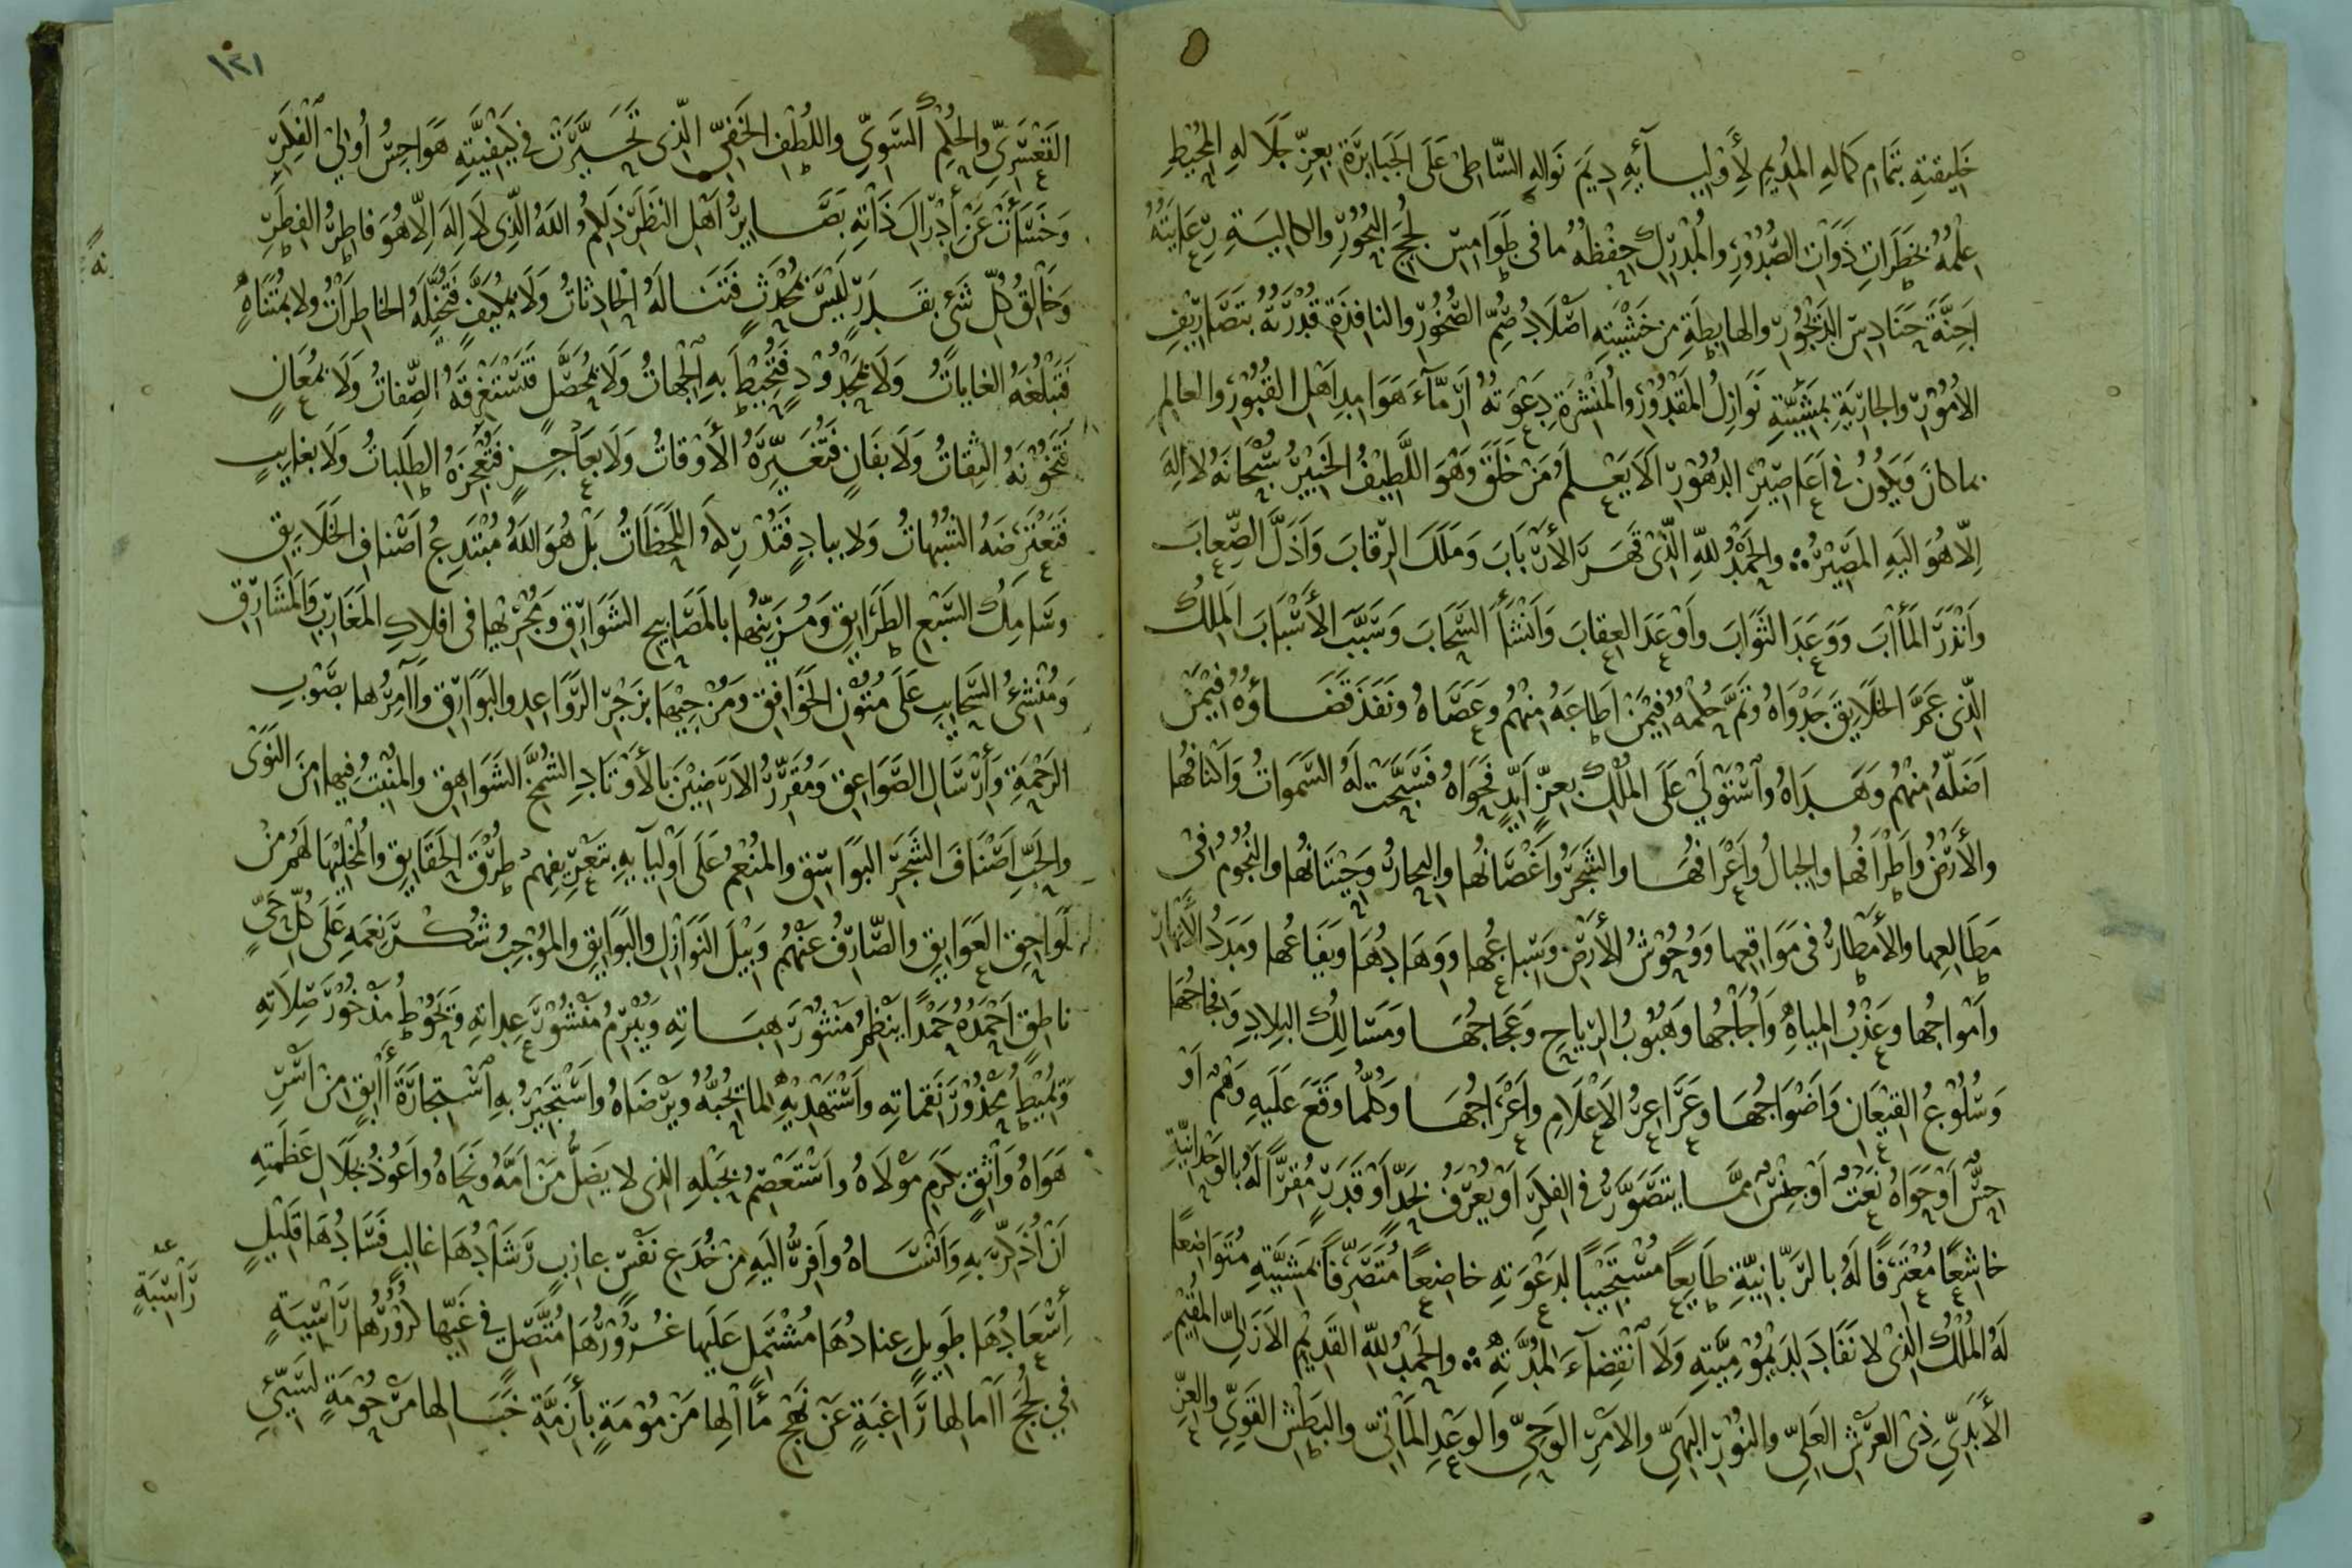 خَلِيقتِهِ بتَمَامِ كمَالهِ المُدِيمِ لأَوْليِسَآئِهِ دِيَمَ نَوَالهِ السَّاطِى عَلَى الجَبَابِرَةِ بعِزِّ جَلَالهِ المُحِيْطِ
عِلْمُهُ بخَطَرَاتِ ذَوَاتِ الصُّدُوْرِ والمُدْرِكِ حِفْظُهُ مافى طَوَامِسِ لُجَجِ البُحُوْرِ والكالِيَةِ رِعَايَتُهُ
اَجِنَّةَ حَنَادِسِ الدَّيْجُوْرِ والهابِطَةِ مِنْ خَشْيَتِهِ اَصْلَادُ صُمِّ الصُّخُوْرِ والنافِذَةِ قُدْرَتُهُ بتَصَارِيْفِ
الأُمُوْرِ والجارِيَةِ بمَشِيَّتِهِ نَوَازِلُ المَقْدُوْرِ والمُنْشِرَةِ دِعْوَتُهُ اَرْمَّآءَ هَوَامِدِ اَهْلِ القُبُوْرِ والعَالِمِ
بماكانَ وَيَكُوْنُ فى اَعَاصِيْرِ الدُهُوْرِ اَلَا يَعْلَمُ مَنْ خَلَقَ وَهْوَ اللَّطِيْفُ الخَبِيْرُ سُبْحَانَهُ لااِلَهَ
اِلّا هُوَ اليَهِ المَصِيْرُ والحَمْدُ للهِ الَّذِى قَهَرَ الأَرْبَابَ وَمَلَكَ الرِقَابَ وَاَذَلَّ الصِّعَابَ
وَاَنْذَرَ المَأَابَ وَوَعَدَ الثَوَابَ وَاَوْعَدَ العِقَابَ وَاَنْشَأَ السَّحَابَ وَسَبَّبَ الأَسْبَابَ المَلِكُ
الّذِى عَمَّ الخَلَايِقَ جَدْوَاهُ وَتَمَّ حُلْمُهُ فِيْمَنْ اَطَاعَهُ مِنْهُمْ وَعَصَاهُ وَنَفَذَ قَضَاؤُهُ فِيْمَنْ
اَضَلّهُ مِنْهُمْ وَهَدَاهُ وَاسْتَوْلَى عَلَى المُلْكِ بعِزٍّ اَبَدٍ فَحَوَاهُ فَسَبَّحَتْ لَهُ السَّمَوَاتُ وَاَكْنَافُها
والأَرْضُ وَاَطْرَافُها والجِبالُ وَاَعْرَافُهَا والشَجَرُ وَاَغْصَانُها والبِحَارُ وَحِيْتَانُها والنُجُوْمُ فى
مَطَالِعِها والأَمْطَارُ فى مَوَاقِعِها وَوُحُوْشُ الأَرْضِ وَسِبَاعُها وَوِهَادُهَا وَبَقَاعُها وَمَدَدُ الأَنْهَارِ
وَاَمْوَاجُها وَعَذْبُ المِيَاهِ وَاُجَاجُها وَهُبُوْبُ الرِيَاحِ وَعَجَاجُهَا وَمَسَالِكُ البِلَادِ وَفِجَاجُهَا
وَسُلُوْعُ القِيْعَانِ وَاَضْوَاجُهَا وَعَرَاعِرُ الاَعْلَامِ وَاَعْرَاجُهَا وَكُلُّما وَقَعَ عَلَيهِ وَهْمٌ اَوْ
حِسٌّ اَوْحَوَاهُ نَعْتٌ اَوْجِنْسٌ مِمَّا يتَصَوَّرُ فى الفِكَرِ اَوْيُعْرَفُ بحَدٍّ اَوْ قَدَرٍ مُقِرًّا لَهُ بالوَحْدَانِيَّةِ
خاشِعًا مُعْتَرِفًا لَهُ بالرَبَّانِيَّةِ طَايِعًا مُسْتَجِيْبًا لدَعْوَتِهِ خاضِعًا مُتَصَرِّفًا بمَشِيَّتِهِ مُتَوَاضِعًا
لَهُ المُلْكُ الّذِىْ لانَفَادَ لدَيْمُوْمِيَّتِهِ وَلَا انْقِضَآءَ لمُدَّتِهِ والحَمْدُ للهِ القَدِيْمِ الاَزَلِىِّ المُقِيْمِ
الأَبَدِىِّ ذِى العَرْشِ العَلِىِّ والنُوْرِ البَهِىِّ والاَمْرِ الوَحِىِّ وَالوَعْدِ المَأتِىِّ والبَطْشِ القَوِىِّ والعِزِّ
١٢١
القَعْسَرِىِّ والحُلْمِ السَّوِىِّ واللُطْفِ الخَفِىِّ الّذِى تَحَيَّرَتْ فى كَيْفِيَّتِهِ هَوَاجِسُ اُولِى الفِكَرِ
وَخَسَأَتْ عَنْ إدْرَاكِ ذَاتِهِ بَصَايِرُ اَهْلِ النَظَرِ ذلِكُمُ اللهُ الّذِى لَااِلَهَ اِلّا هُوَ فاطِرُ الفِطَرِ
وَخَالِقُ كُلِّ شَىْءٍ بقَدَرٍ لَيْسَ بمُحْدَثٍ فَتَنَالَهُ الحادِثاتُ وَلَا بمُكَيَّفٍ فَتُخَيِّلَهُ الخاطِرَاتُ ولا بمُتَنَاهٍ
فَتَبْلُغَهُ الغَايَاتُ وَلَا بمَحْدُوْدٍ فَتُحِيْطَ بِهِ الجِهَاتُ وَلَا بمُحَصَّلٍ فَتَسْتَغْرِقَهُ الصِّفَاتُ وَلَا بمُعَانٍ
فَتَخُوْنَهُ الثِقَاتُ وَلَا بفَانٍ فَتُغَيِّرَهُ الأَوْقَاتُ وَلَا بعَاجِزٍ فَتُعْجِزَهُ الطَلِبَاتُ وَلَا بغَايِبٍ
فَتَعْتَرِضَهُ الشُبُهَاتُ وَلا ببادٍ فَتُدْرِكَهُ اللَّحَظَاتُ بَلْ هُوَ اللهُ مُبْتَدِعُ اَصْنَافِ الخَلَايِقِ
وَسَامِكُ السَّبْعِ الطَرَايِقِ وَمُزَيِّنُها بالمَصَابِيحِ الشَوَارِقِ وَمُجْرِيْها فى افْلَاكِ المَغَارِبِ وَالمَشَارِقِ
وَمُنْشِئُ السَّحَايِبِ عَلَى مُتُوْنِ الخَوَافِقِ وَمُزْجِيْهَا بزَجْرِ الرَّوَاعِدِ والبَوَارِقِ وَاَآمِرُها بصَوْبِ
الرَحْمَةِ وَاَرْسَالِ الصَّوَاعِقِ وَمُقَرِّرُ الاَرَضِيْنَ بالأَوْتَادِ الشُمَّخِ الشَوَاهِقِ والمُنْبِتُ فِيها مِنَ النَوَى
والحَبِّ اَصْنَافَ الشَجَرِ البَوَاسِقِ والمُنْعِمُ عَلَى اَوْليَآيهِ بتَعْرِيفِهِمْ طُرُقَ الحَقَايِقِ والمُخَلِّيْهَا لَهُمْ مِنْ
لَوَاحِقِ العَوَايِقِ والصَّارِفُ عَنْهُمْ وَبيْلَ النَوَازِلِ والبَوَايِقِ والمُوْجِبُ شُكْرَ نِعَمِهِ عَلَى كُلِّ حَىٍّ
ناطِقٍ اَحْمَدُهُ حَمْدًا يَنْظِمُ مَنْثُوْرَ هِبَاتِهِ وَيُبْرِمُ مَنْشُوْرَ عِدَاتِهِ وَيَحُوْطُ مَذْخُوْرَ صِلَاتِهِ
وَيُمِيْطُ مَحْذُوْرَ نَقِمَاتِهِ وَاَسْتَهْدِيْهِ لمَا يُحِبُّهُ ويَرْضَاهُ وَاَسْتَجِيْرُ بهِ اسْتِجَارَةَ اَأبِقٍ مِنْ اَسْرِ
هَوَاهُ وَاثِقٍ بكَرَمِ مَوْلَاهُ وَاَسْتَعْصِمُ بحَبْلِهِ الذِى لا يَضِلُّ مَنْ اَمَّهُ وَنَحَاهُ وَاَعُوْذُ بجَلَالِ عَظَمَتِهِ
اَنْ اُذَكِّرَ بهِ وَاَنْسَاهُ وَاَفِرُّ اليَهِ مِنْ خُدَعِ نَفْسٍ عازِبٍ رَشَادُهَا غالِبٍ فَسَادُهَا قَلِيْلٍ
إسْعَادُهَا طَوِيلٍ عِنادُهَا مُشْتَمِلٍ عَلَيها غُرُوْرُهَا مُتَّصِلٍ فى غَيِّها كرُوْرُها رَّاسِبَةٍ
رَّاسِبَةٍ
فى لُجَجِ اَآمالِها رَّاغِبَةٍ عَنْ نَهْجِ مَأالِها مَزْمُوْمَةٍ بأَزِمَّةِ خَبَالِها مَرْحُوْمَةٍ لسَيِّئِ